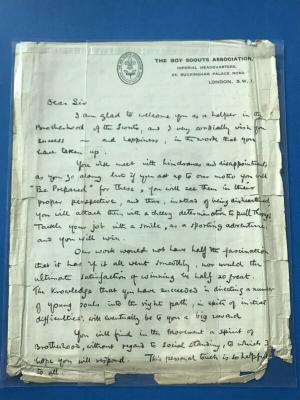 THE BOY SCOUTS ASSOCIATION,
IMPERIAL HEADQUARTERS,
25, BUCKINGHAM PALACE ROAD,
LONDON, S.W.1.
Dear Sir
I am glad to welcome you as a helper in the
Brotherhood of the Scouts, and I very cordially wish you
success – and happiness, in the work that you
have taken up.
You will meet with hindrances and disappointments
as you go along but if you act up to our motto you will
"Be Prepared" for these, you will see them in their
proper perspective, and thus, instead of being disheartened
you will attack them with a cheery determination to pull through.
Tackle your job with a smile, as a sporting adventure
and you will win.
Our work would not have half the fascination
that it has if it all went smoothly, nor would the
ultimate satisfaction of winning be half so great.
The knowledge that you have succeeded in directing a number
of young souls into the right path, in spite of initial
difficulties, will eventually be to you a big reward.
You will find in the Movement a spirit of
Brotherhood, without regard to social standing, to which I
hope you will respond. This personal touch is so helpful
to all.